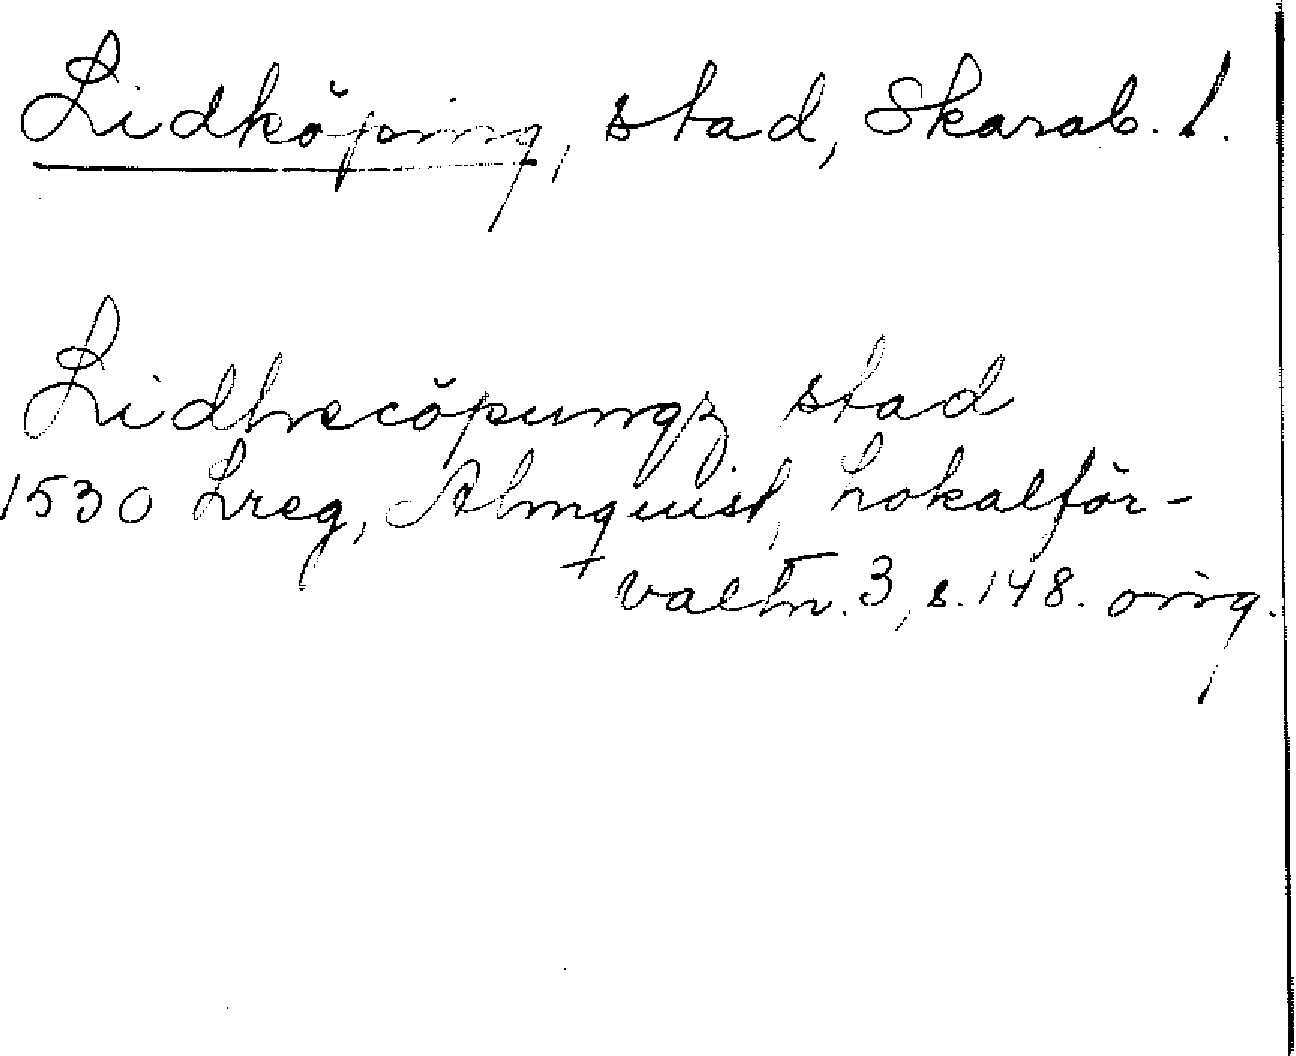 Lidköping, stad, Skarab. l.
Lidhecöpungz stad
1530 Lreg, Almquist, Lokalför-
valtn. 3, s. 148. orig.